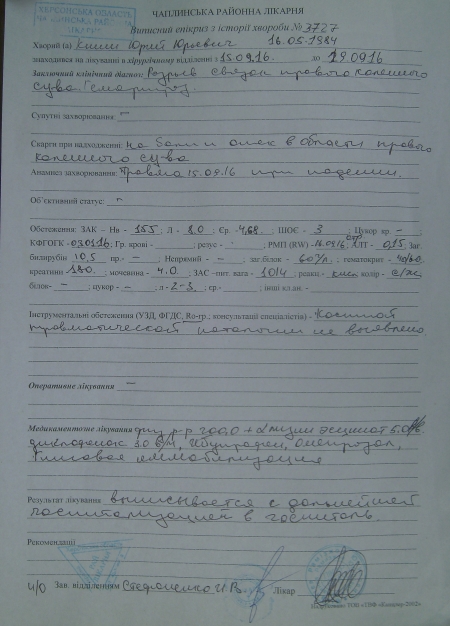 ХЕРСОНСЬКА ОБЛАСТЬ
ЧАПЛИНСЬКА РАЙОННА ЛІКАРНЯ
Виписний епікриз з історії хвороби № 3727
Хворий (а) Юрий Юрьевич 16.05.1984
знаходився на лікуванні в хірургічному відділенні з 15.09.16 до 19.09.16
Заключний клінічний діагноз: Разрыв связок правого коленного
сустава. Гемартроз.
Супутні захворювання: —
Скарги при надходженні: на боли и отек в области правого
коленного сустава
Анамнез захворювання: Травма 15.09.16 при падении.
Об`єктивний статус: —
Обстеження: ЗАК – Нв - 155 ; Л - 8,0 Єр. - 4,68 ШОЄ - 3 ; Цукор кр. –
КФГОГК - 030116; Гр. крові - ; резус - - ; РМП (RW) - 16.09.16 отр АЛТ - 0,15 заг
билирубін 10,5 пр.- — ; Непрямий - — ; заг білок - 60 г/л ; гематокрит -
креатинін 180 ; мочевина - 4.0 ; ЗАС –пит. вага - 1014 ; реакц.- кисл колір - с/ж
білок- – ; цукор – – ; л - 2-3 ; ер.- ; інші кл.ан. -
Інструментальні обстеження (УЗД, ФГДС, Ro-гр.; консультації спеціалістів) - Костной
травматической патологии не выявлено
Оперативне лікування —
Медикаментозне лікування физ р-р 200,0 + L лизин эсцинат 5.0
диклофенак 3.0 в/м, Ибупрофен, Омепразол,
Гипсовая иммобилизация
Результат лікування выписывается с дальнейшей
госпитализацией в госпиталь.
Рекомендації
И/О Зав. відділенням Стефаненко И.В. Лікар